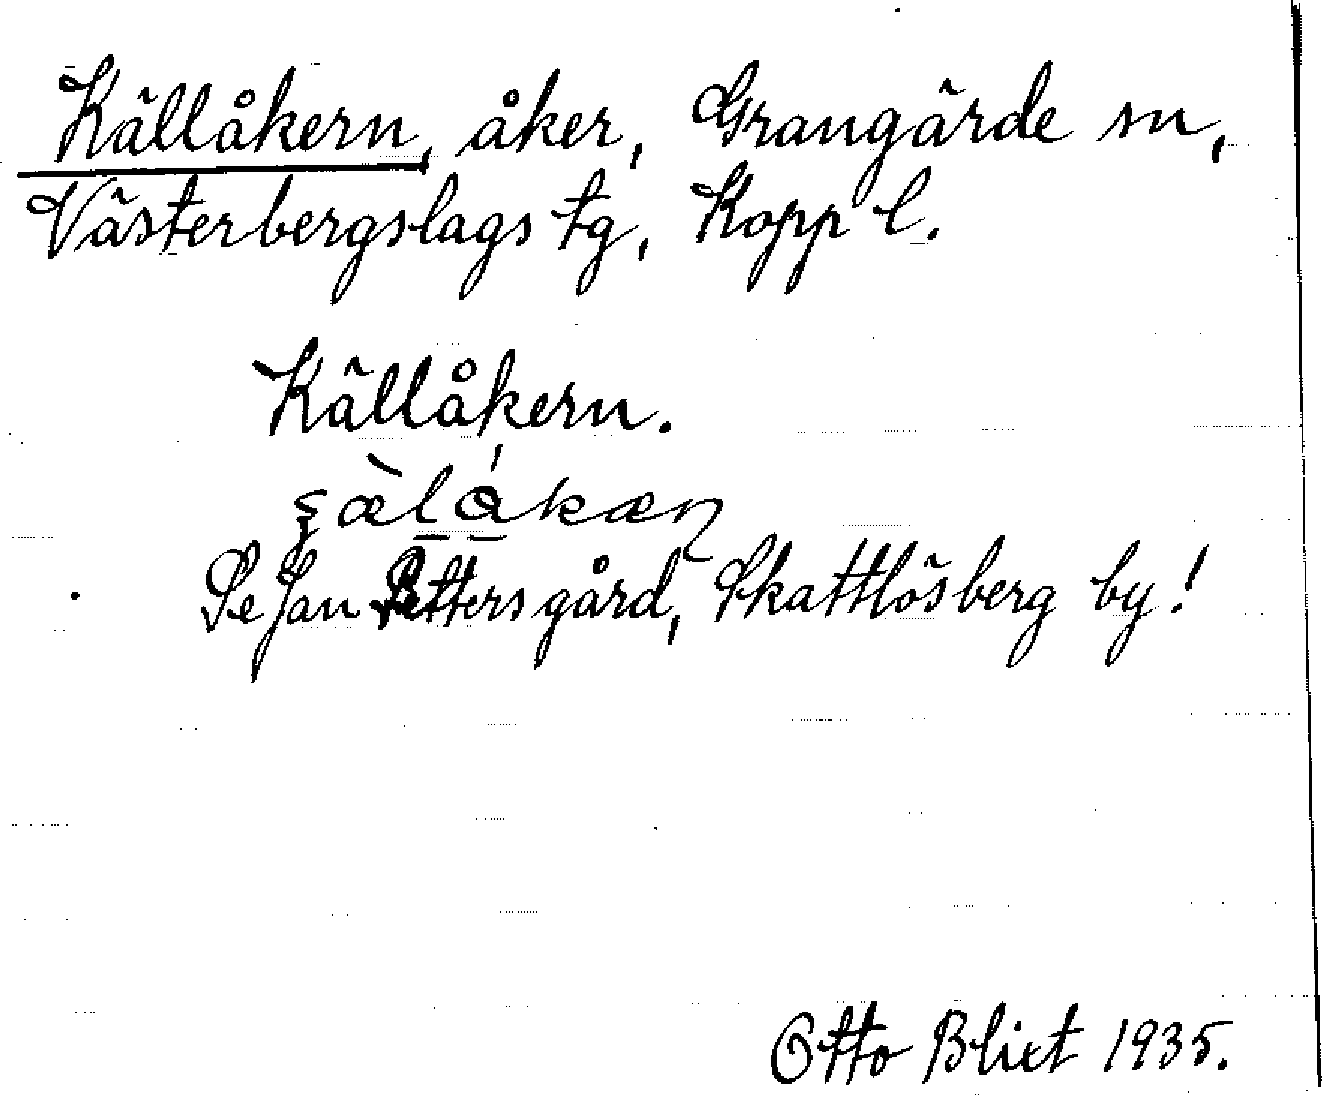 Källåkern, åker, Grangärde sn,
Västerbergslags tg, Kopp l.
Källåkern.
Se Jan Pettersgård, Skattlösberg by!
Otto Blixt 1935.